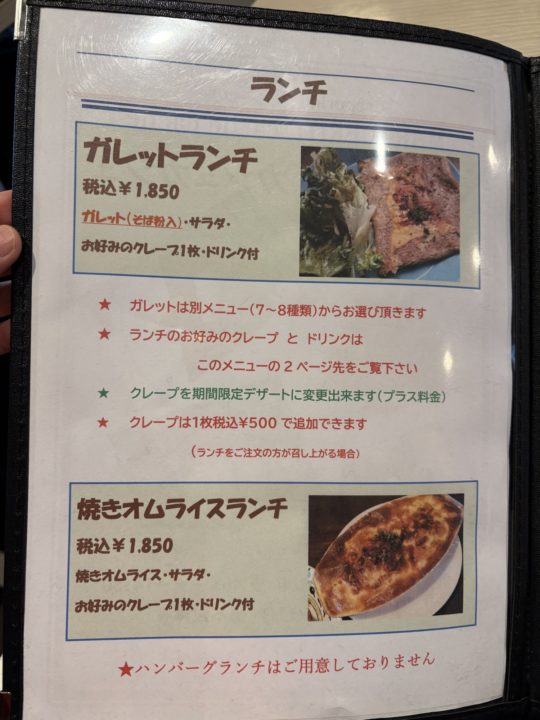 ランチ
ガレットランチ
税込￥1.850
ガレット(そば粉入)・サラダ・
お好みのクレープ1枚・ドリンク付
★ ガレットは別メニュー(7～8種類)からお選び頂きます
★ ランチのお好みのクレープ と ドリンクは
このメニューの 2 ページ先をご覧下さい
★ クレープを期間限定デザートに変更出来ます(プラス料金)
★ クレープは1枚税込￥500 で追加できます
(ランチをご注文の方が召し上がる場合)
焼きオムライスランチ
税込￥1.850
焼きオムライス・サラダ・
お好みのクレープ1枚・ドリンク付
★ハンバーグランチはご用意しておりません